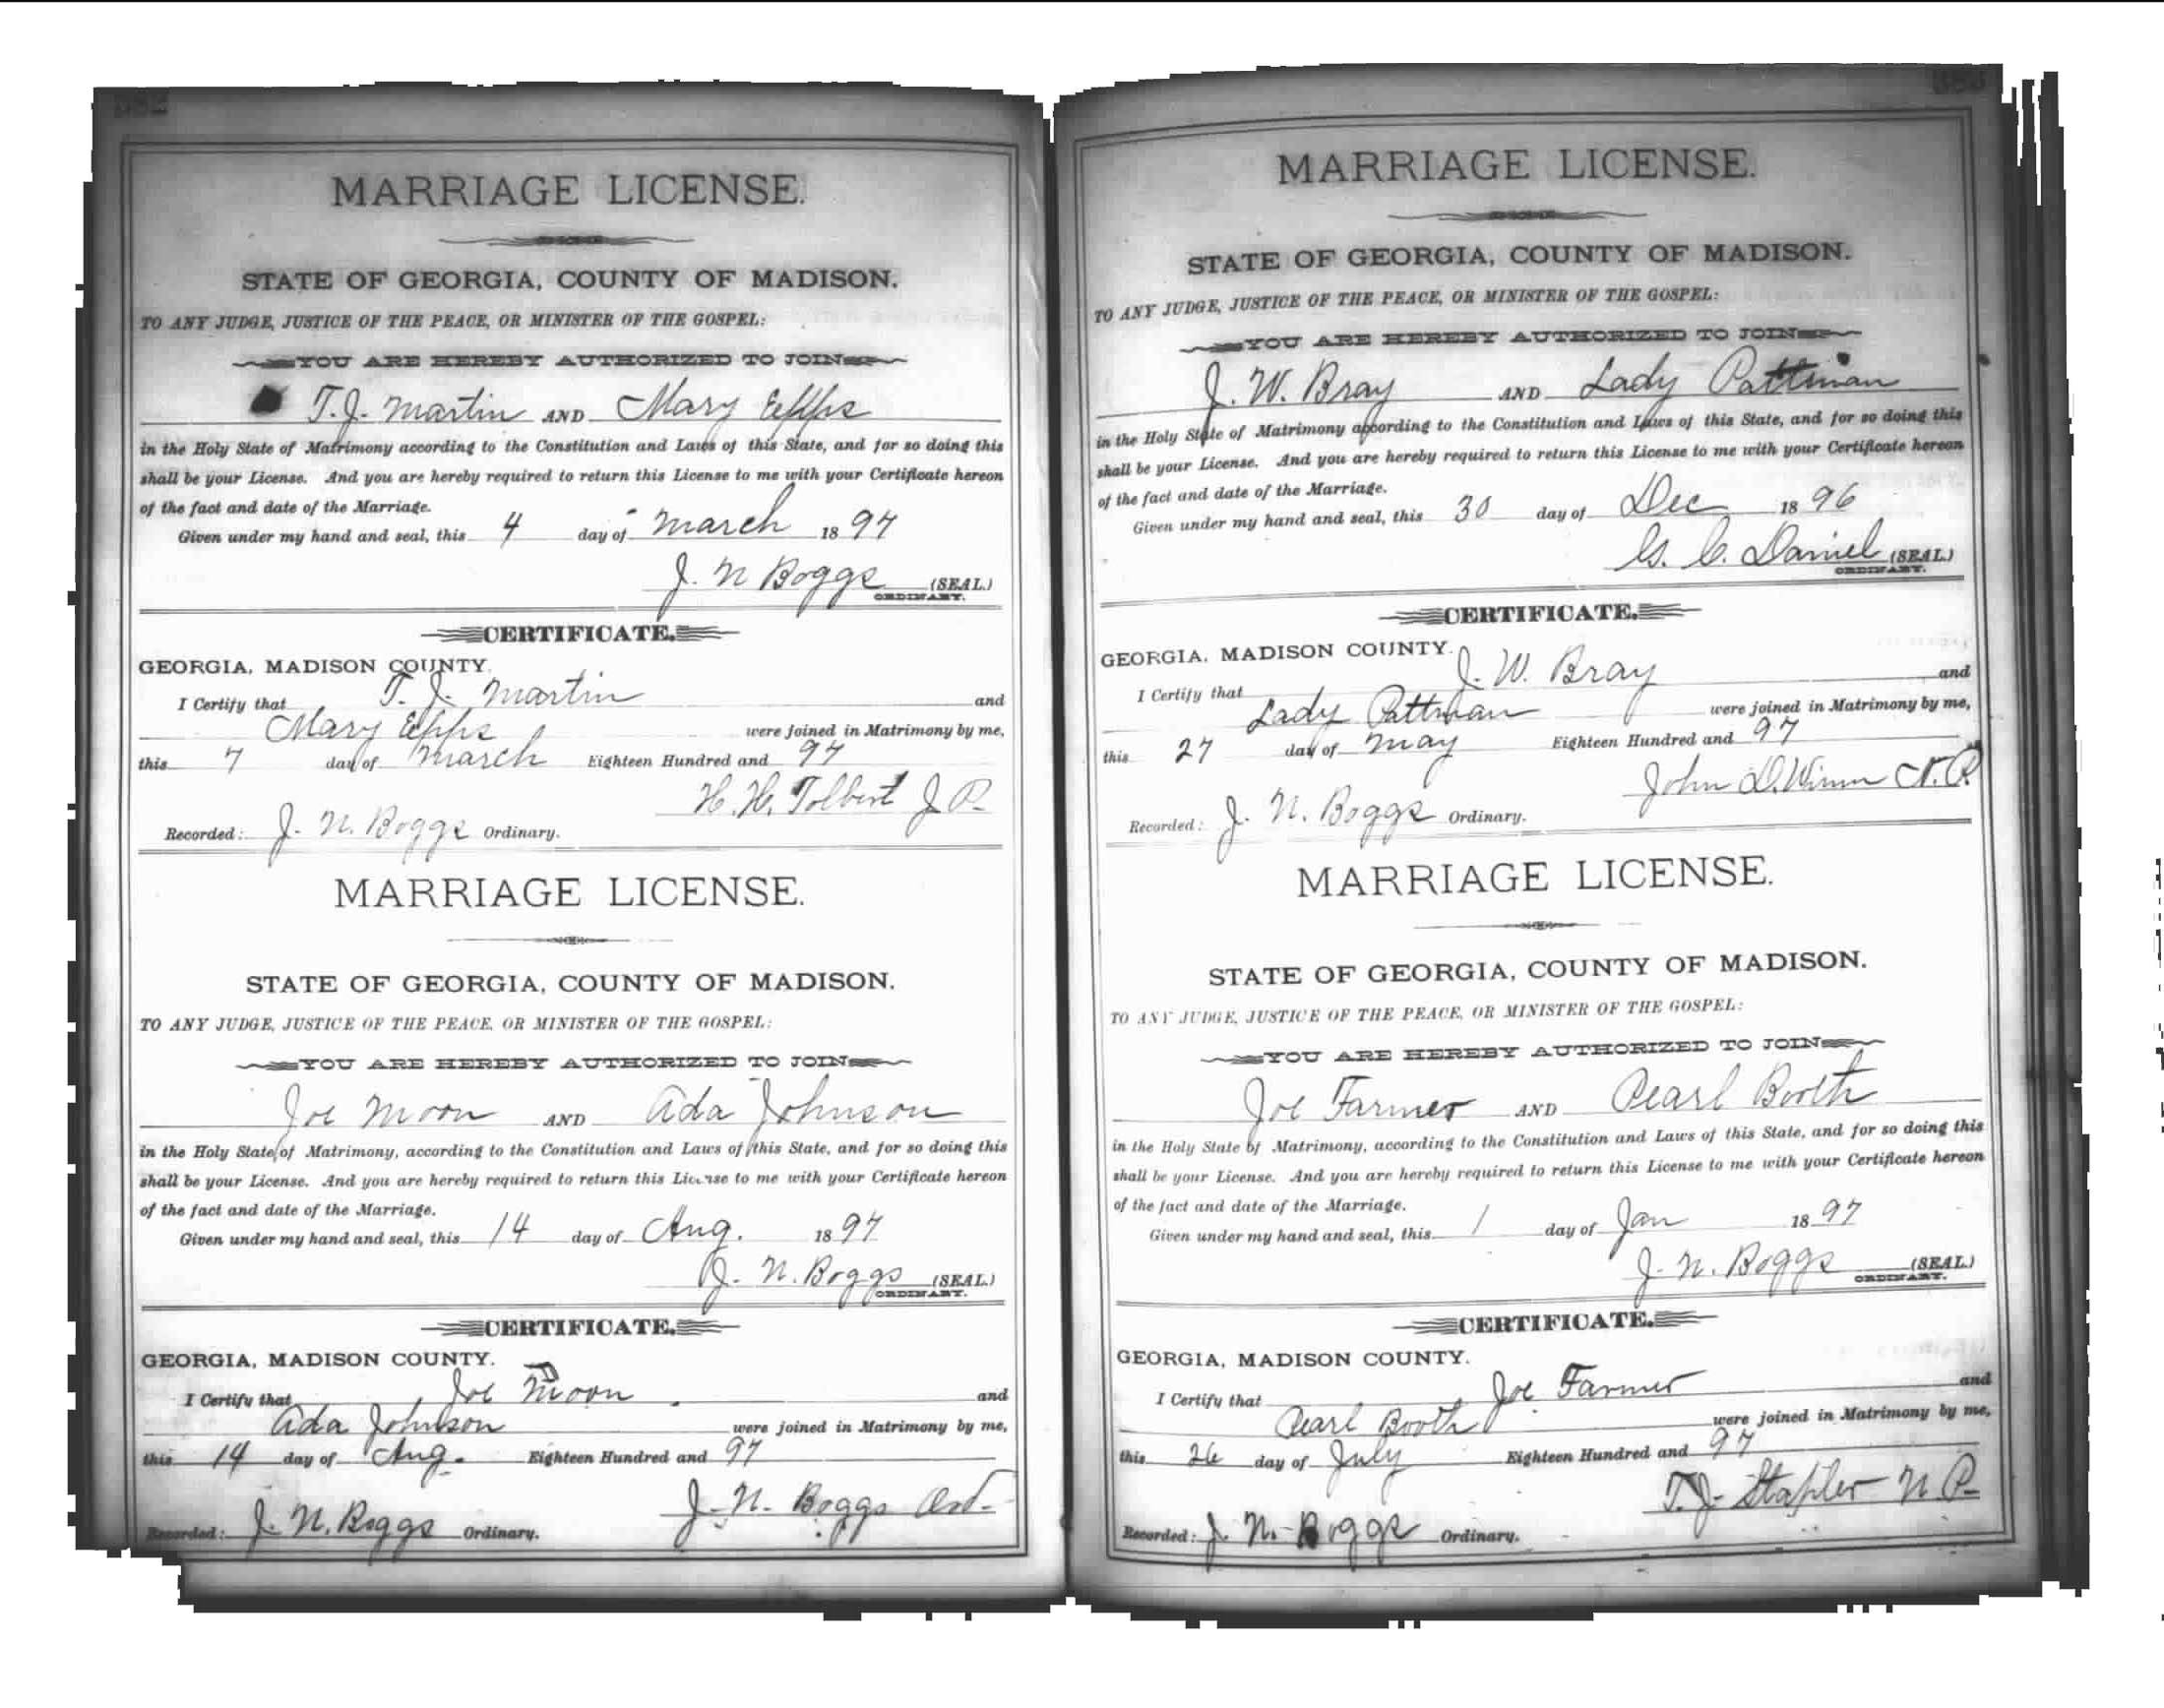 MARRIAGE LICENSE.
STATE OF GEORGIA, COUNTY OF MADISON.
TO ANY JUDGE, JUSTICE OF THE PEACE, OR MINISTER OF THE GOSPEL:
YOU ARE HEREBY AUTHORIZED TO JOIN
T. J. Martin AND Mary Epps
in the Holy State of Matrimony according to the Constitution and Laws of this State, and for so doing this
shall be your License. And you are hereby required to return this License to me with your Certificate hereon
of the fact and date of the Marriage.
Given under my hand and seal, this 4 day of March 1897
J. N Boggs (SEAL.)
ORDINARY.
CERTIFICATE.
GEORGIA, MADISON COUNTY.
I Certify that T. J. Martin and
Mary Epps were joined in Matrimony by me,
this 7 day of March Eighteen Hundred and 97
H. H. Tolbert J P.
Recorded: J. N. Boggs Ordinary.
MARRIAGE LICENSE.
STATE OF GEORGIA, COUNTY OF MADISON.
TO ANY JUDGE, JUSTICE OF THE PEACE, OR MINISTER OF THE GOSPEL:
YOU ARE HEREBY AUTHORIZED TO JOIN
Joe Moon AND Ada Johnson
in the Holy State of Matrimony, according to the Constitution and Laws of this State, and for so doing this
shall be your License. And you are hereby required to return this License to me with your Certificate hereon
of the fact and date of the Marriage.
Given under my hand and seal, this 14 day of Aug. 1897
J. N. Boggs (SEAL.)
ORDINARY.
CERTIFICATE.
GEORGIA, MADISON COUNTY.
I Certify that Joe Moon and
Ada Johnson were joined in Matrimony by me,
this 14 day of Aug. Eighteen Hundred and 97
J. N. Boggs Ord.
Recorded: J. N. Boggs Ordinary.
MARRIAGE LICENSE.
STATE OF GEORGIA, COUNTY OF MADISON.
TO ANY JUDGE, JUSTICE OF THE PEACE, OR MINISTER OF THE GOSPEL:
YOU ARE HEREBY AUTHORIZED TO JOIN
J. W. Bray AND Lady Pattman
in the Holy State of Matrimony according to the Constitution and Laws of this State, and for so doing this
shall be your License. And you are hereby required to return this License to me with your Certificate hereon
of the fact and date of the Marriage.
Given under my hand and seal, this 30 day of Dec 1896
G. C. Daniel (SEAL.)
ORDINARY.
CERTIFICATE.
GEORGIA, MADISON COUNTY.
I Certify that J. W. Bray and
Lady Pattman were joined in Matrimony by me,
this 27 day of May Eighteen Hundred and 97
John D. Winn N. P.
Recorded: J. N. Boggs Ordinary.
MARRIAGE LICENSE.
STATE OF GEORGIA, COUNTY OF MADISON.
TO ANY JUDGE, JUSTICE OF THE PEACE, OR MINISTER OF THE GOSPEL:
YOU ARE HEREBY AUTHORIZED TO JOIN
Joe Farmer AND Pearl Booth
in the Holy State of Matrimony, according to the Constitution and Laws of this State, and for so doing this
shall be your License. And you are hereby required to return this License to me with your Certificate hereon
of the fact and date of the Marriage.
Given under my hand and seal, this 1 day of Jan 1897
J. N. Boggs (SEAL.)
ORDINARY.
CERTIFICATE.
GEORGIA, MADISON COUNTY.
I Certify that Joe Farmer and
Pearl Booth were joined in Matrimony by me,
this 26 day of July Eighteen Hundred and 97
T. J. Stapler N. P.
Recorded: J. N. Boggs Ordinary.